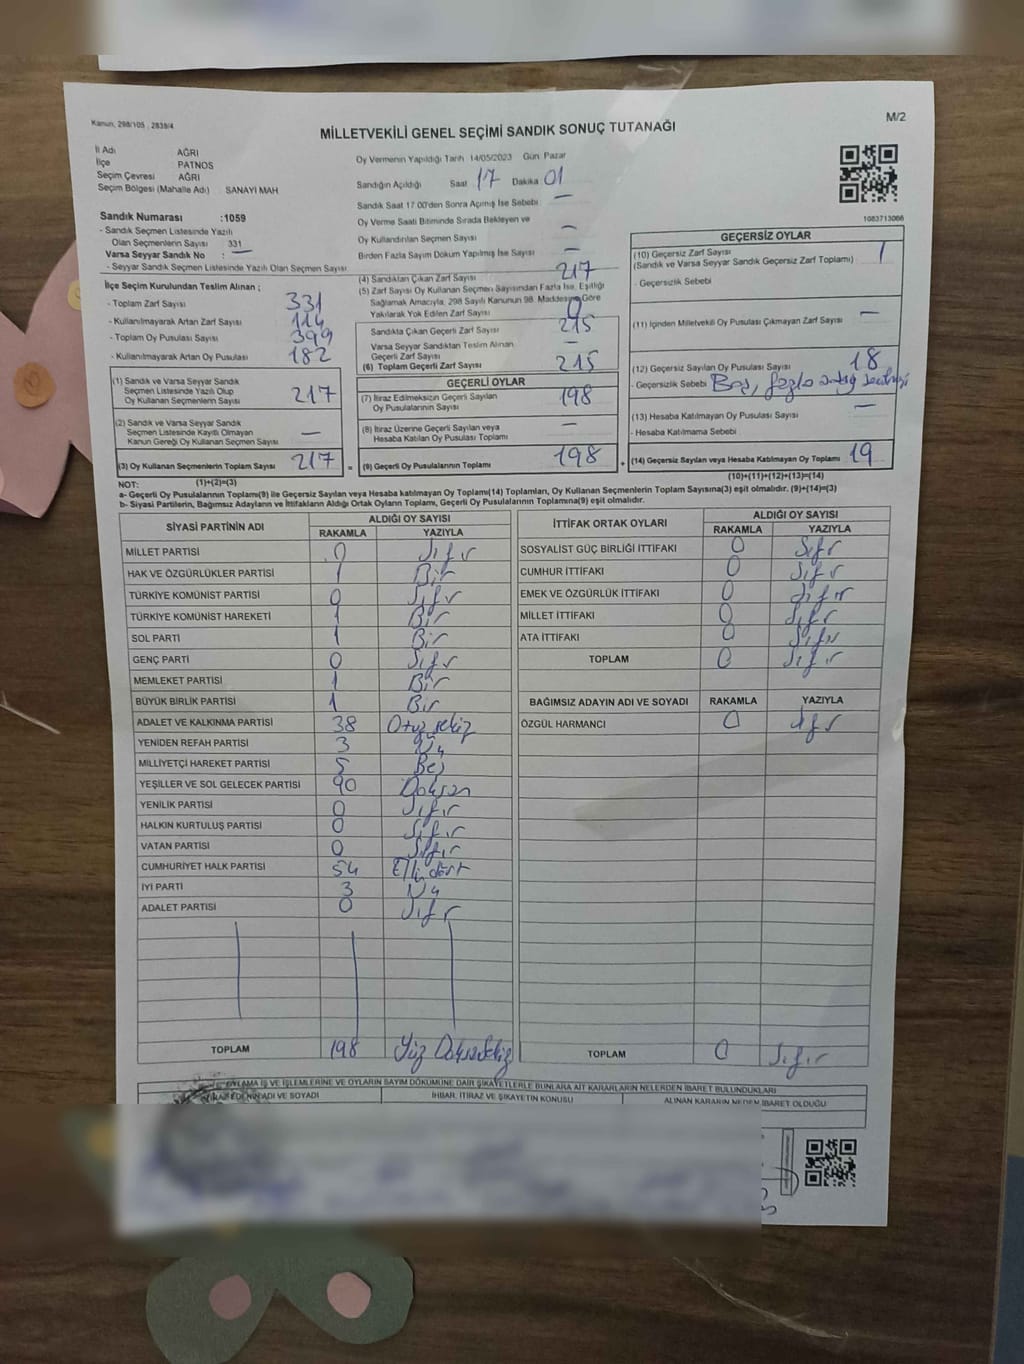 Kanun, 298/105 , 2839/4
MİLLETVEKİLİ GENEL SEÇİMİ SANDIK SONUÇ TUTANAĞI
M/2
İl Adı AĞRI
İlçe PATNOS
Seçim Çevresi AĞRI
Seçim Bölgesi (Mahalle Adı) SANAYİ MAH
Sandık Numarası :1059
- Sandık Seçmen Listesinde Yazılı
Olan Seçmenlerin Sayısı 331
Varsa Seyyar Sandık No : —
- Seyyar Sandık Seçmen Listesinde Yazılı Olan Seçmen Sayısı
Oy Vermenin Yapıldığı Tarih 14/05/2023 Gün Pazar
Sandığın Açıldığı Saat 17 Dakika 01
Sandık Saat 17 00'den Sonra Açımış İse Sebebi —
Oy Verme Saati Bitiminde Sırada Bekleyen ve
Oy Kullandırılan Seçmen Sayısı —
Birden Fazla Sayım Döküm Yapılmış İse Sayısı —
1083713066
İlçe Seçim Kurulundan Teslim Alınan ;
- Toplam Zarf Sayısı 331
- Kullanılmayarak Artan Zarf Sayısı 114
- Toplam Oy Pusulası Sayısı 399
- Kullanılmayarak Artan Oy Pusulası 182
(1) Sandık ve Varsa Seyyar Sandık
Seçmen Listesinde Yazılı Olup
Oy Kullanan Seçmenlerin Sayısı 217
(2) Sandık ve Varsa Seyyar Sandık
Seçmen Listesinde Kayıtlı Olmayan
Kanun Gereği Oy Kullanan Seçmen Sayısı —
(3) Oy Kullanan Seçmenlerin Toplam Sayısı 217
(1)+(2)=(3)
(4) Sandıktan Çıkan Zarf Sayısı 217
(5) Zarf Sayısı Oy Kullanan Seçmen Sayısından Fazla İse, Eşitliği
Sağlamak Amacıyla, 298 Sayılı Kanunun 98. Maddesine Göre
Yakılarak Yok Edilen Zarf Sayısı 0
Sandıkta Çıkan Geçerli Zarf Sayısı 215
Varsa Seyyar Sandıktan Teslim Alınan
Geçerli Zarf Sayısı —
(6) Toplam Geçerli Zarf Sayısı 215
GEÇERLİ OYLAR
(7) İtiraz Edilmeksizin Geçerli Sayılan
Oy Pusulalarının Sayısı 198
(8) İtiraz Üzerine Geçerli Sayılan veya
Hesaba Katılan Oy Pusulası Toplamı —
= (9) Geçerli Oy Pusulalarının Toplamı 198 +
GEÇERSİZ OYLAR
(10) Geçersiz Zarf Sayısı 1
(Sandık ve Varsa Seyyar Sandık Geçersiz Zarf Toplamı)
- Geçersizlik Sebebi
(11) İçinden Milletvekili Oy Pusulası Çıkmayan Zarf Sayısı —
(12) Geçersiz Sayılan Oy Pusulası Sayısı 18
- Geçersizlik Sebebi Boş, fazla
(13) Hesaba Katılmayan Oy Pusulası Sayısı —
- Hesaba Katılmama Sebebi
(14) Geçersiz Sayılan veya Hesaba Katılmayan Oy Toplamı 19
(10)+(11)+(12)+(13)=(14)
NOT:
a- Geçerli Oy Pusulalarının Toplamı(9) ile Geçersiz Sayılan veya Hesaba katılmayan Oy Toplamı(14) Toplamları, Oy Kullanan Seçmenlerin Toplam Sayısına(3) eşit olmalıdır. (9)+(14)=(3)
b- Siyasi Partilerin, Bağımsız Adayların ve İttifakların Aldığı Ortak Oyların Toplamı, Geçerli Oy Pusulalarının Toplamına(9) eşit olmalıdır.
SİYASİ PARTİNİN ADI ALDIĞI OY SAYISI
RAKAMLA YAZIYLA
MİLLET PARTİSİ 0 Sıfır
HAK VE ÖZGÜRLÜKLER PARTİSİ 1 Bir
TÜRKİYE KOMÜNİST PARTİSİ 0 Sıfır
TÜRKİYE KOMÜNİST HAREKETİ 1 Bir
SOL PARTİ 1 Bir
GENÇ PARTİ 0 Sıfır
MEMLEKET PARTİSİ 1 Bir
BÜYÜK BİRLİK PARTİSİ 1 Bir
ADALET VE KALKINMA PARTİSİ 38 Otuz sekiz
YENİDEN REFAH PARTİSİ 3 Üç
MİLLİYETÇİ HAREKET PARTİSİ 5 Beş
YEŞİLLER VE SOL GELECEK PARTİSİ 90 Doksan
YENİLİK PARTİSİ 0 Sıfır
HALKIN KURTULUŞ PARTİSİ 0 Sıfır
VATAN PARTİSİ 0 Sıfır
CUMHURİYET HALK PARTİSİ 54 Elli dört
İYİ PARTİ 3 Üç
ADALET PARTİSİ 0 Sıfır
TOPLAM 198 Yüz Doksan Sekiz
İTTİFAK ORTAK OYLARI ALDIĞI OY SAYISI
RAKAMLA YAZIYLA
SOSYALİST GÜÇ BİRLİĞİ İTTİFAKI 0 Sıfır
CUMHUR İTTİFAKI 0 Sıfır
EMEK VE ÖZGÜRLÜK İTTİFAKI 0 Sıfır
MİLLET İTTİFAKI 0 Sıfır
ATA İTTİFAKI 0 Sıfır
TOPLAM 0 Sıfır
BAĞIMSIZ ADAYIN ADI VE SOYADI RAKAMLA YAZIYLA
ÖZGÜL HARMANCI 0 Sıfır
TOPLAM 0 Sıfır
OYLAMA İŞ VE İŞLEMLERİNE VE OYLARIN SAYIM DÖKÜMÜNE DAİR ŞİKAYETLERLE BUNLARA AİT KARARLARIN NELERDEN İBARET BULUNDUKLARI
İTİRAZ EDENİN ADI VE SOYADI İHBAR, İTİRAZ VE ŞİKAYETİN KONUSU ALINAN KARARIN NEDEN İBARET OLDUĞU